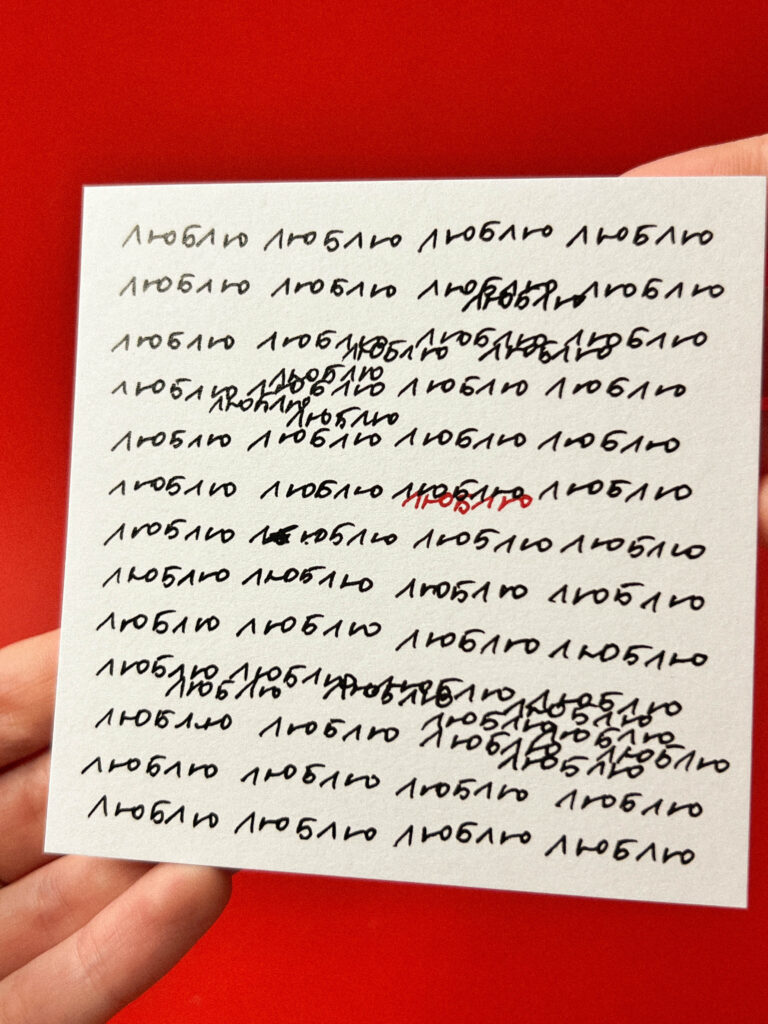 люблю люблю люблю люблю
люблю люблю люблю люблю
люблю
люблю люблю люблю люблю
люблю люблю
люблю
люблю люблю люблю люблю
люблю
люблю
люблю люблю люблю люблю
люблю люблю люблю люблю
люблю
люблю люблю люблю люблю
люблю люблю люблю люблю
люблю люблю люблю люблю
люблю люблю люблю люблю
люблю люблю люблю
люблю люблю люблю люблю
люблю люблю
люблю люблю
люблю люблю люблю люблю
люблю люблю люблю люблю